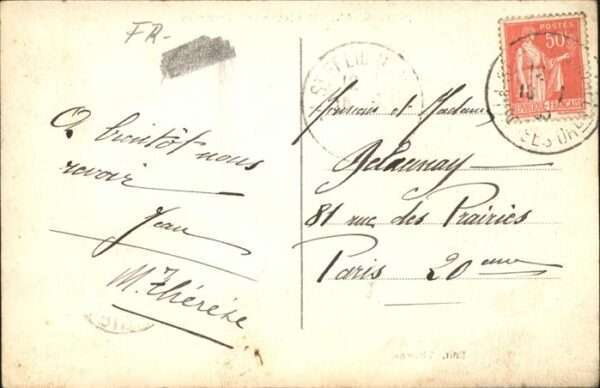 FR-
A bientôt nous
revoir
Jean
M. Thérèse
Monsieur et Madame
Delaunay
81 rue des Prairies
Paris 20eme
POSTES
50c